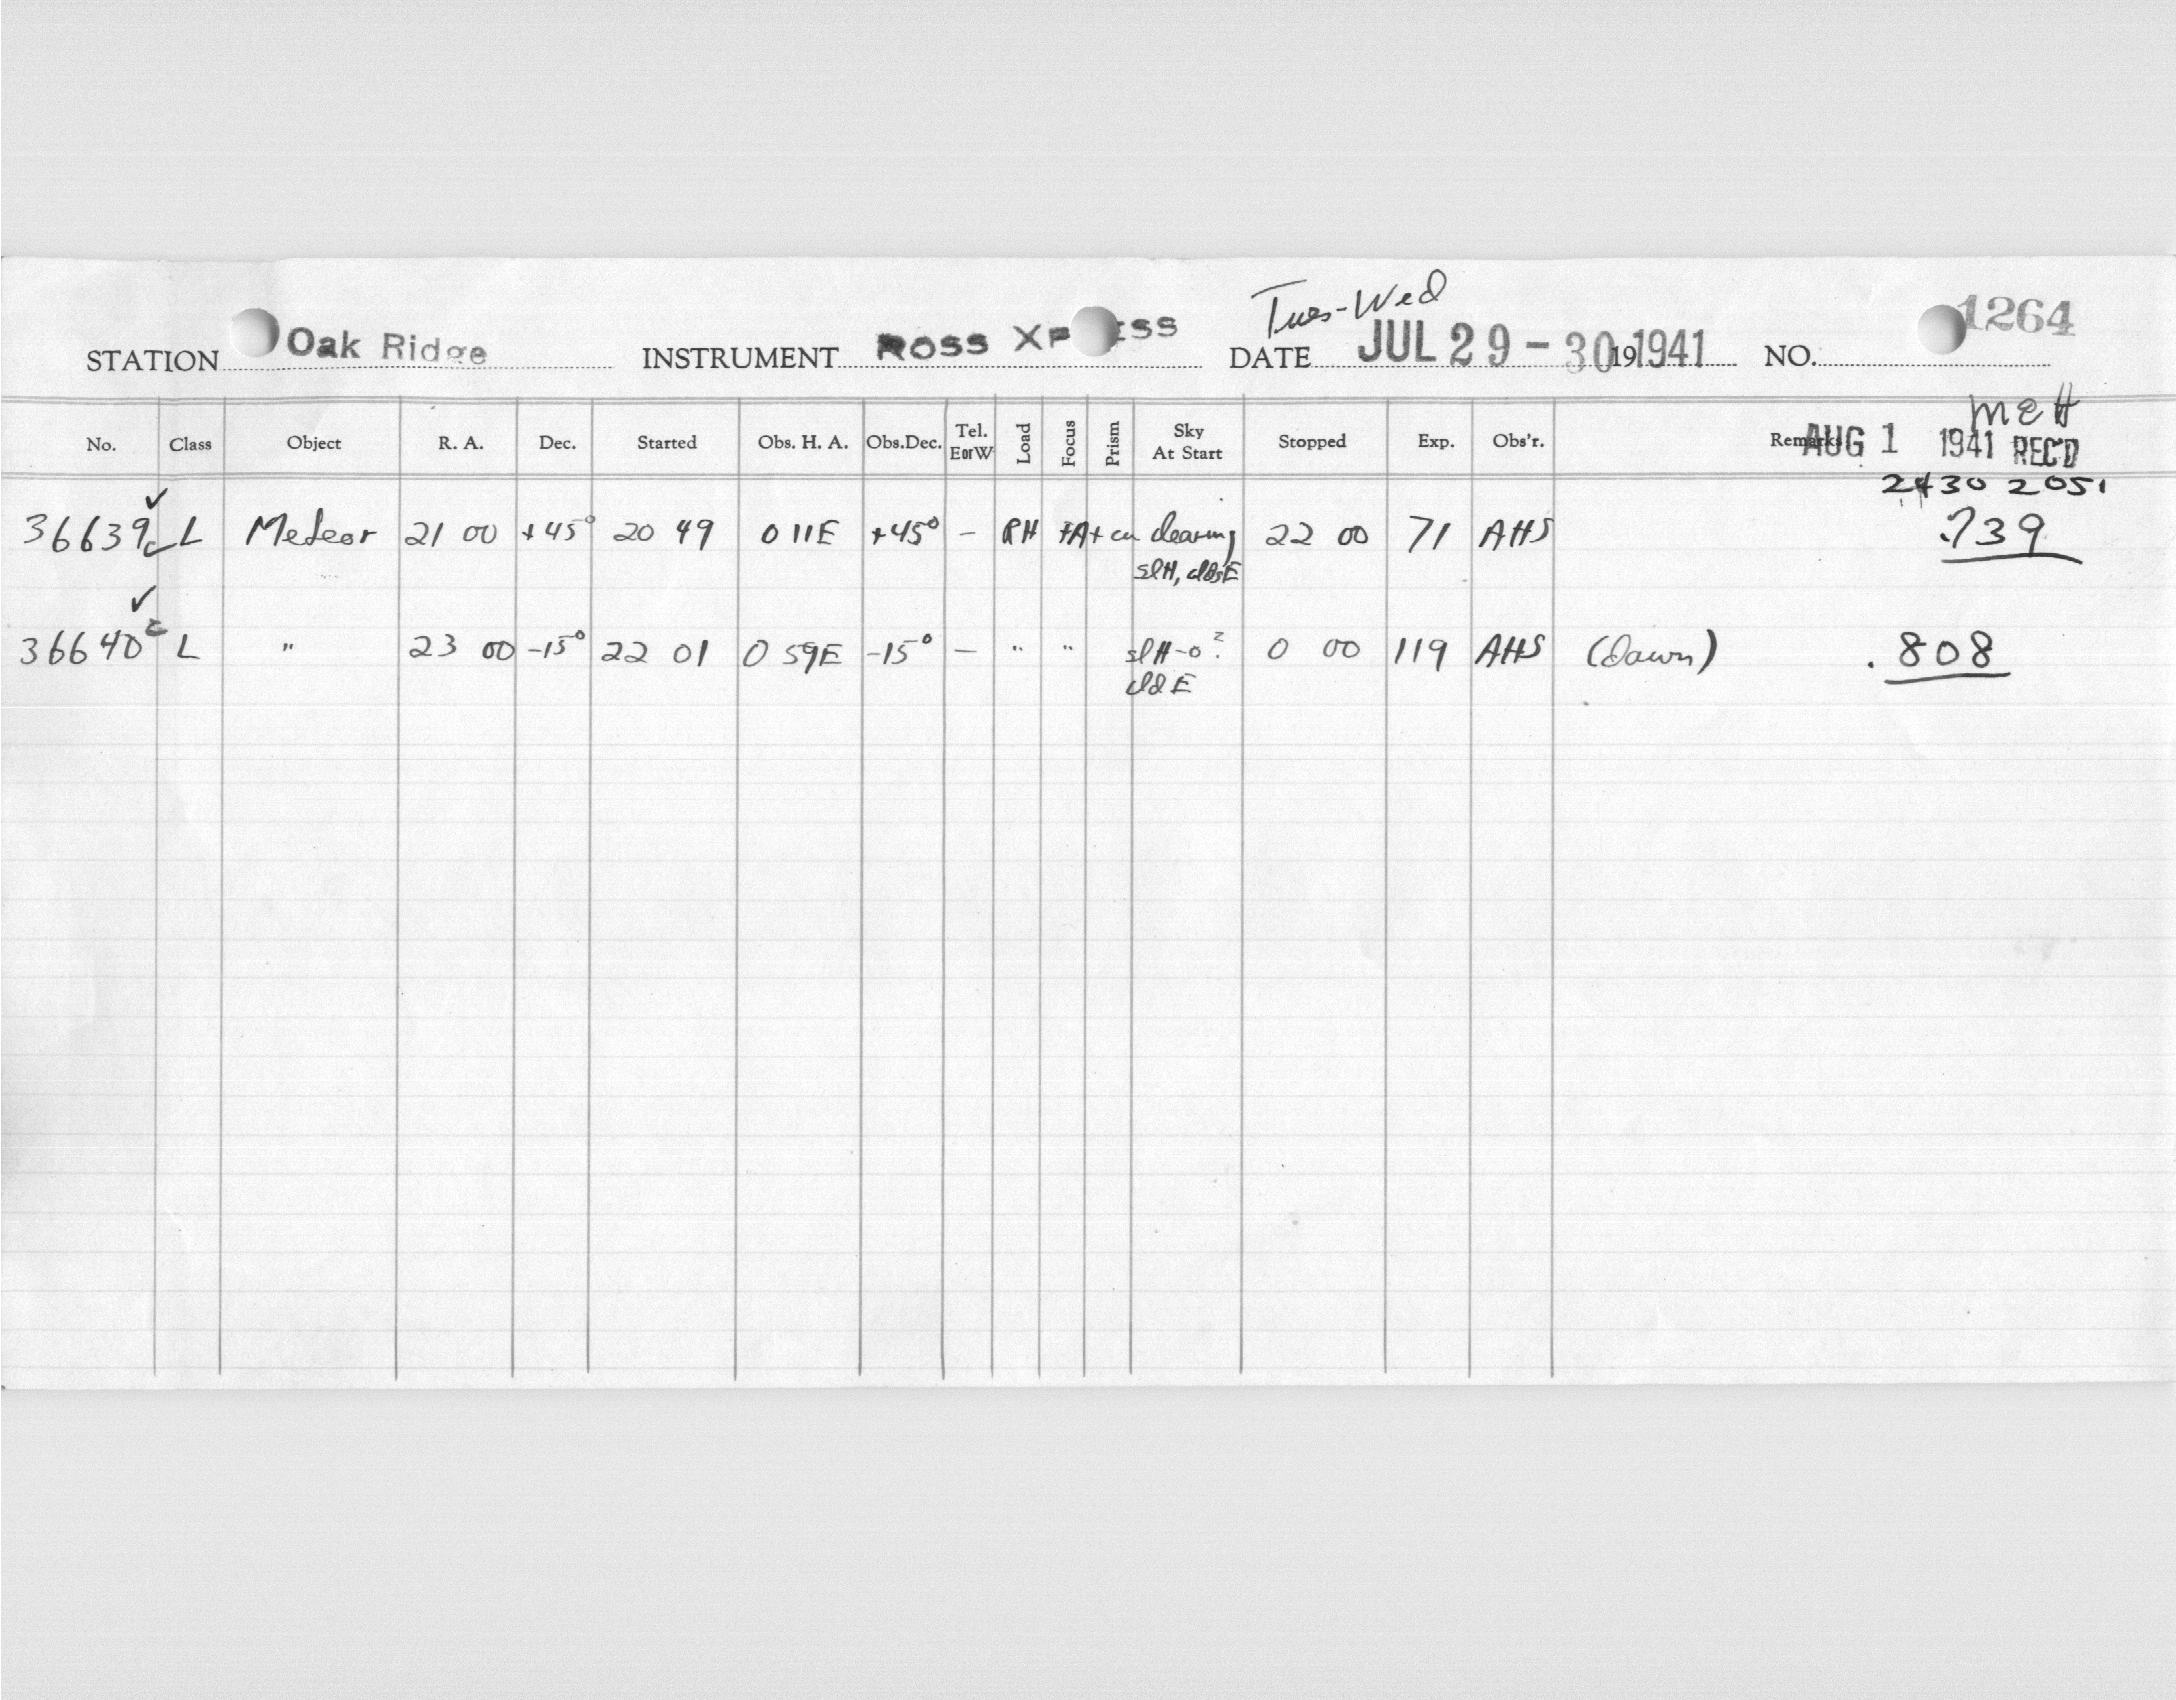 Tues-Wed
STATION Oak Ridge INSTRUMENT ROSS XP ESS DATE JUL 29-30 19 1941 NO. 1264
MEH
No. Class Object R. A. Dec. Started Obs. H. A. Obs.Dec. Tel. EorW Load Focus Prism Sky At Start Stopped Exp. Obs'r. Remarks AUG 1 1941 REC'D
2430 205
✓
36639 c L Meteor 21 00 +45° 20 49 0 11E +45° - RH +A+ cu clearing 22 00 71 AHS .739
slH, clds E
✓
36640 c L " 23 00 -15° 22 01 0 59E -15° - " " slH-0? 0 00 119 AHS (dawn) .808
cld E